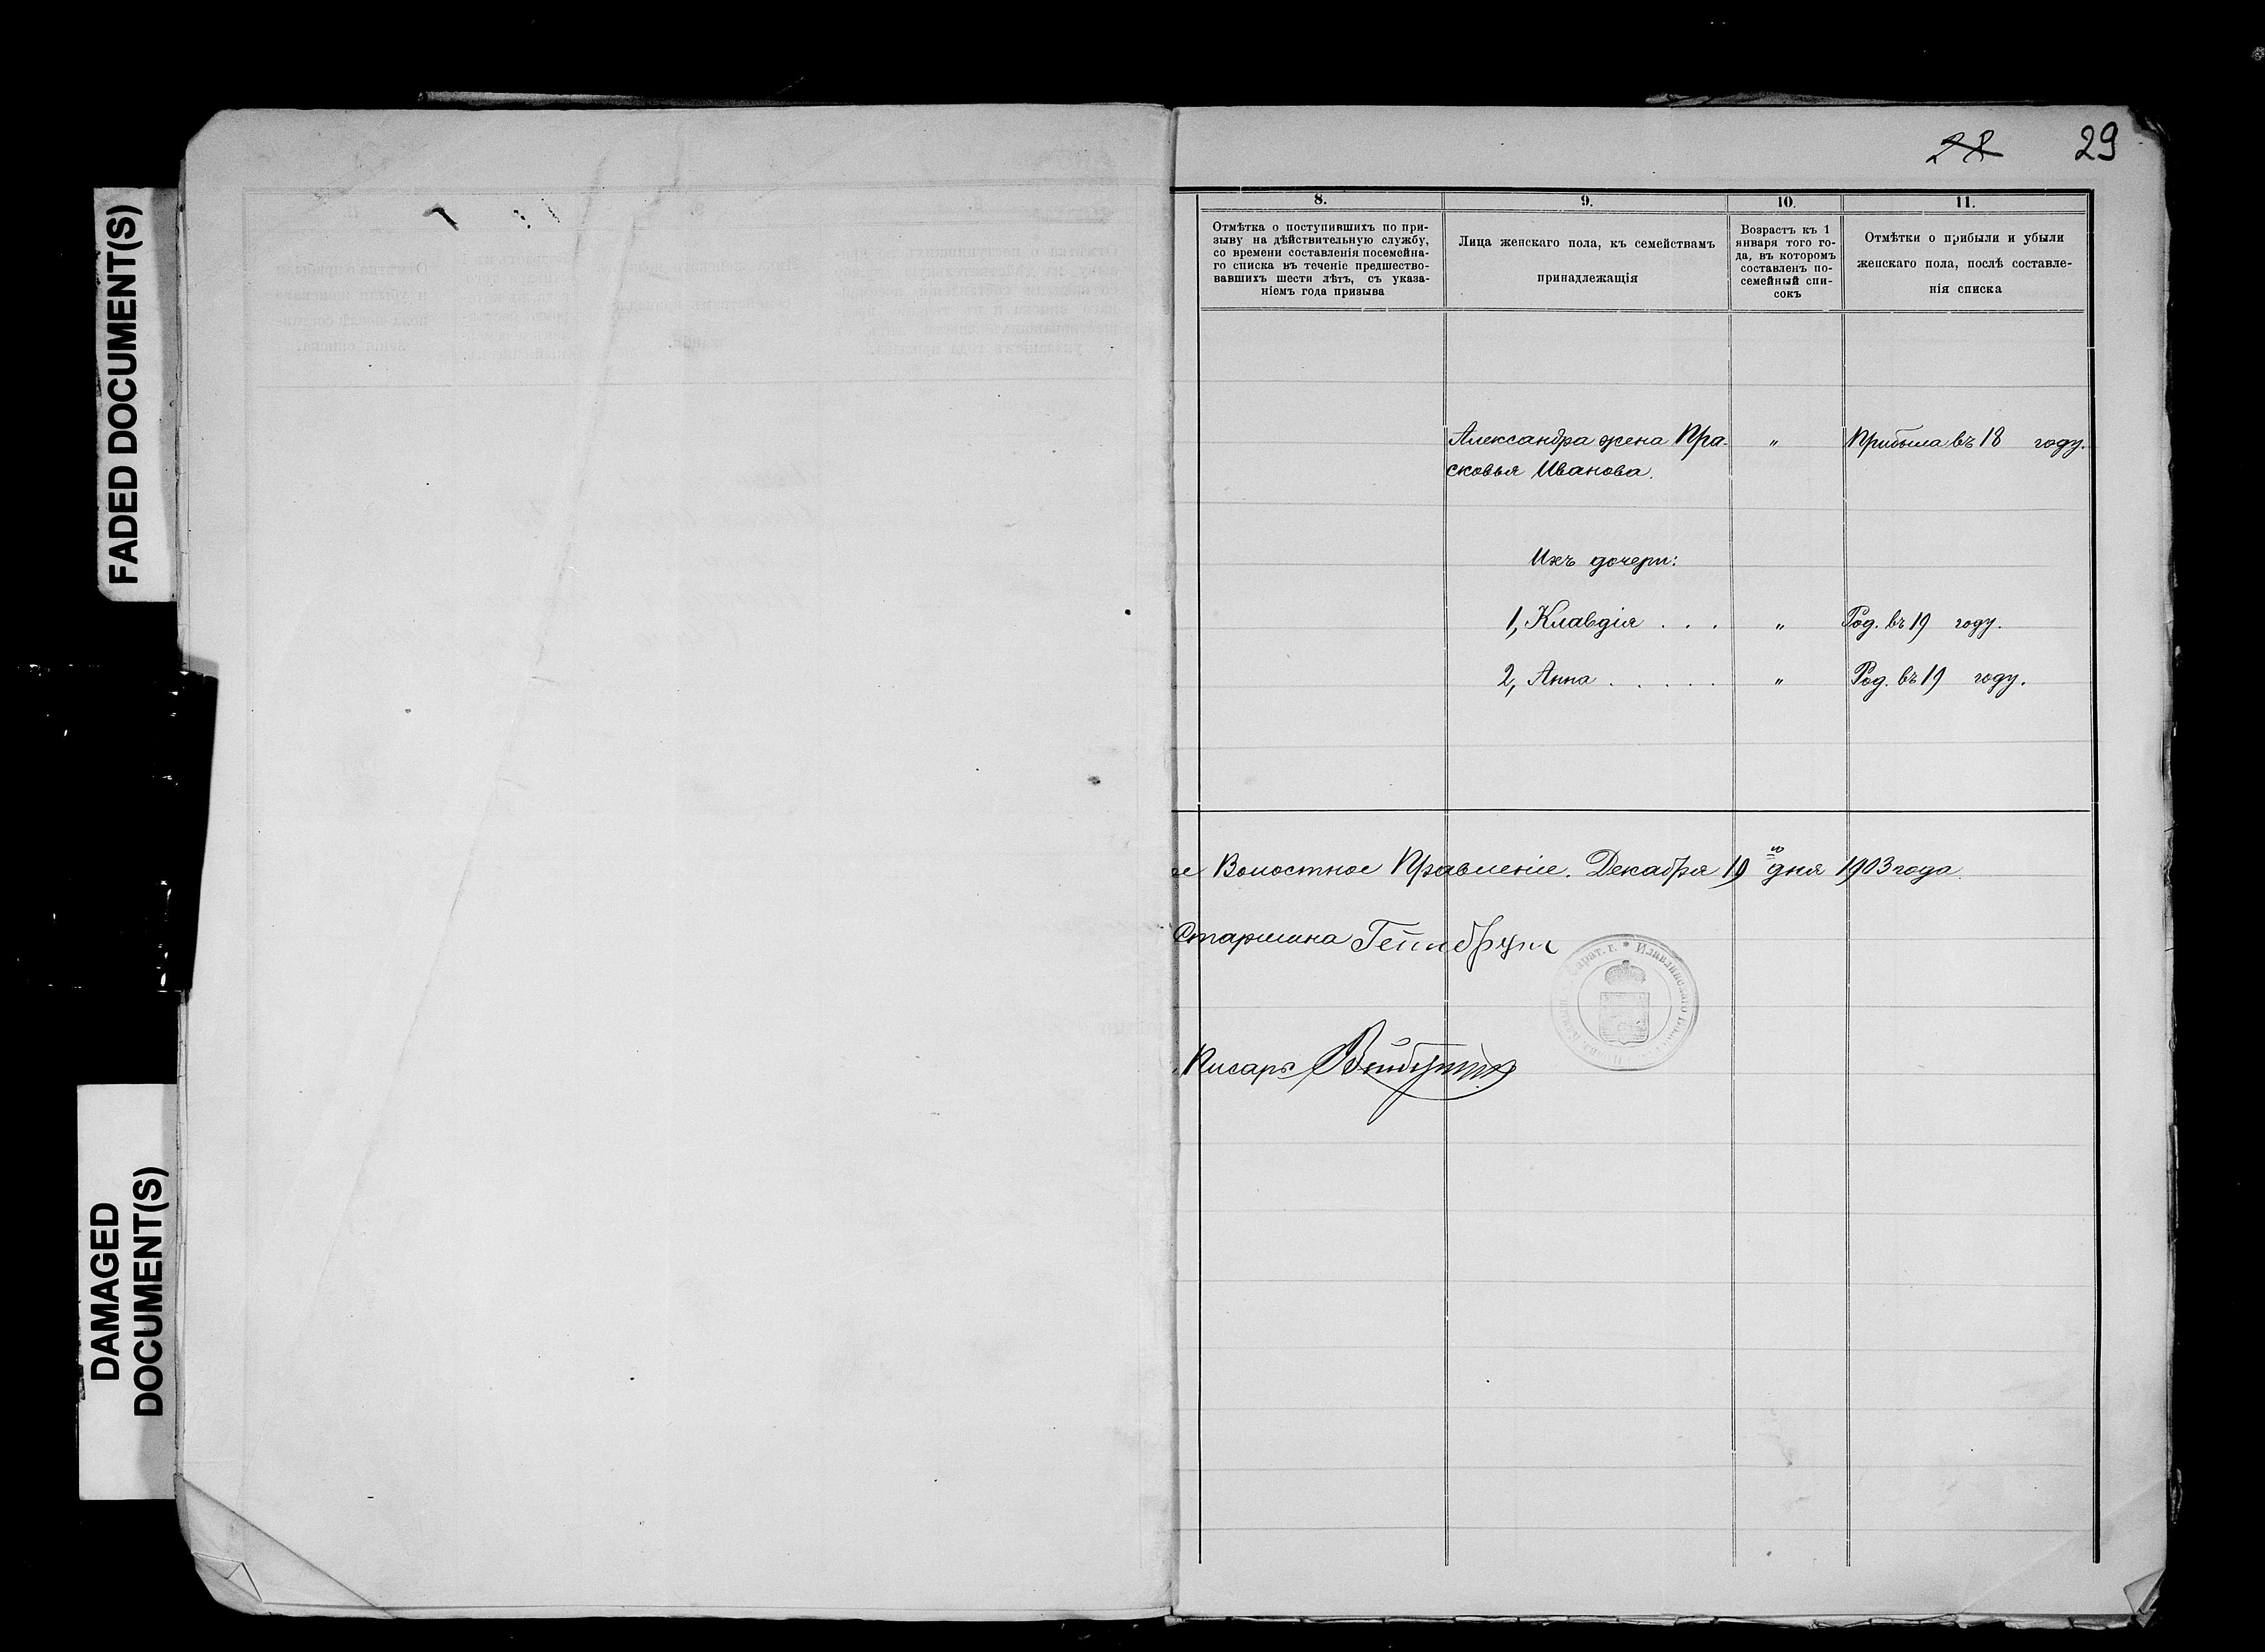 FADED DOCUMENT(S)
DAMAGED
DOCUMENT(S)
28 29
8. 9. 10. 11.
Отмѣтка о поступившихъ по при-
зыву на дѣйствительную службу,
со времени составленія посемейна-
го списка въ теченіе предшество-
вавшихъ шести лѣтъ, съ указа-
ніемъ года призыва
Лица женскаго пола, къ семействамъ
принадлежащія
Возрастъ къ 1
января того го-
да, въ которомъ
составленъ по-
семейный спи-
сокъ
Отмѣтки о прибыли и убыли
женскаго пола, послѣ составле-
нія списка
Александра жена Пра- " Прибыла въ 18 году.
сковья Иванова.
Ихъ дочери:
1, Клавдія . . . " Род. въ 19 году.
2, Анна . . . . . " Род. въ 19 году.
Волостное Правленіе. Декабря 19 дня 1903 года.
Старшина
Писарь
Сарат. г. * Иловлинскаго